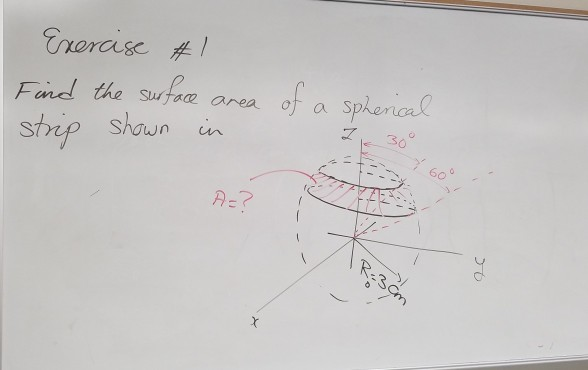 Exercise #1
Find the surface area of a spherical
strip shown in
Z
30°
60°
A=?
y
R₀=3cm
x